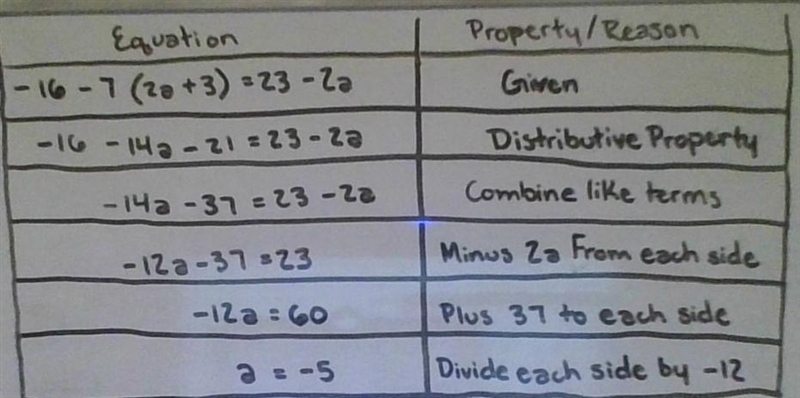 Equation Property/Reason
-16 - 7 (2a + 3) = 23 - 2a Given
-16 - 14a - 21 = 23 - 2a Distributive Property
-14a - 37 = 23 - 2a Combine like terms
-12a - 37 = 23 Minus 2a From each side
-12a = 60 Plus 37 to each side
a = -5 Divide each side by -12